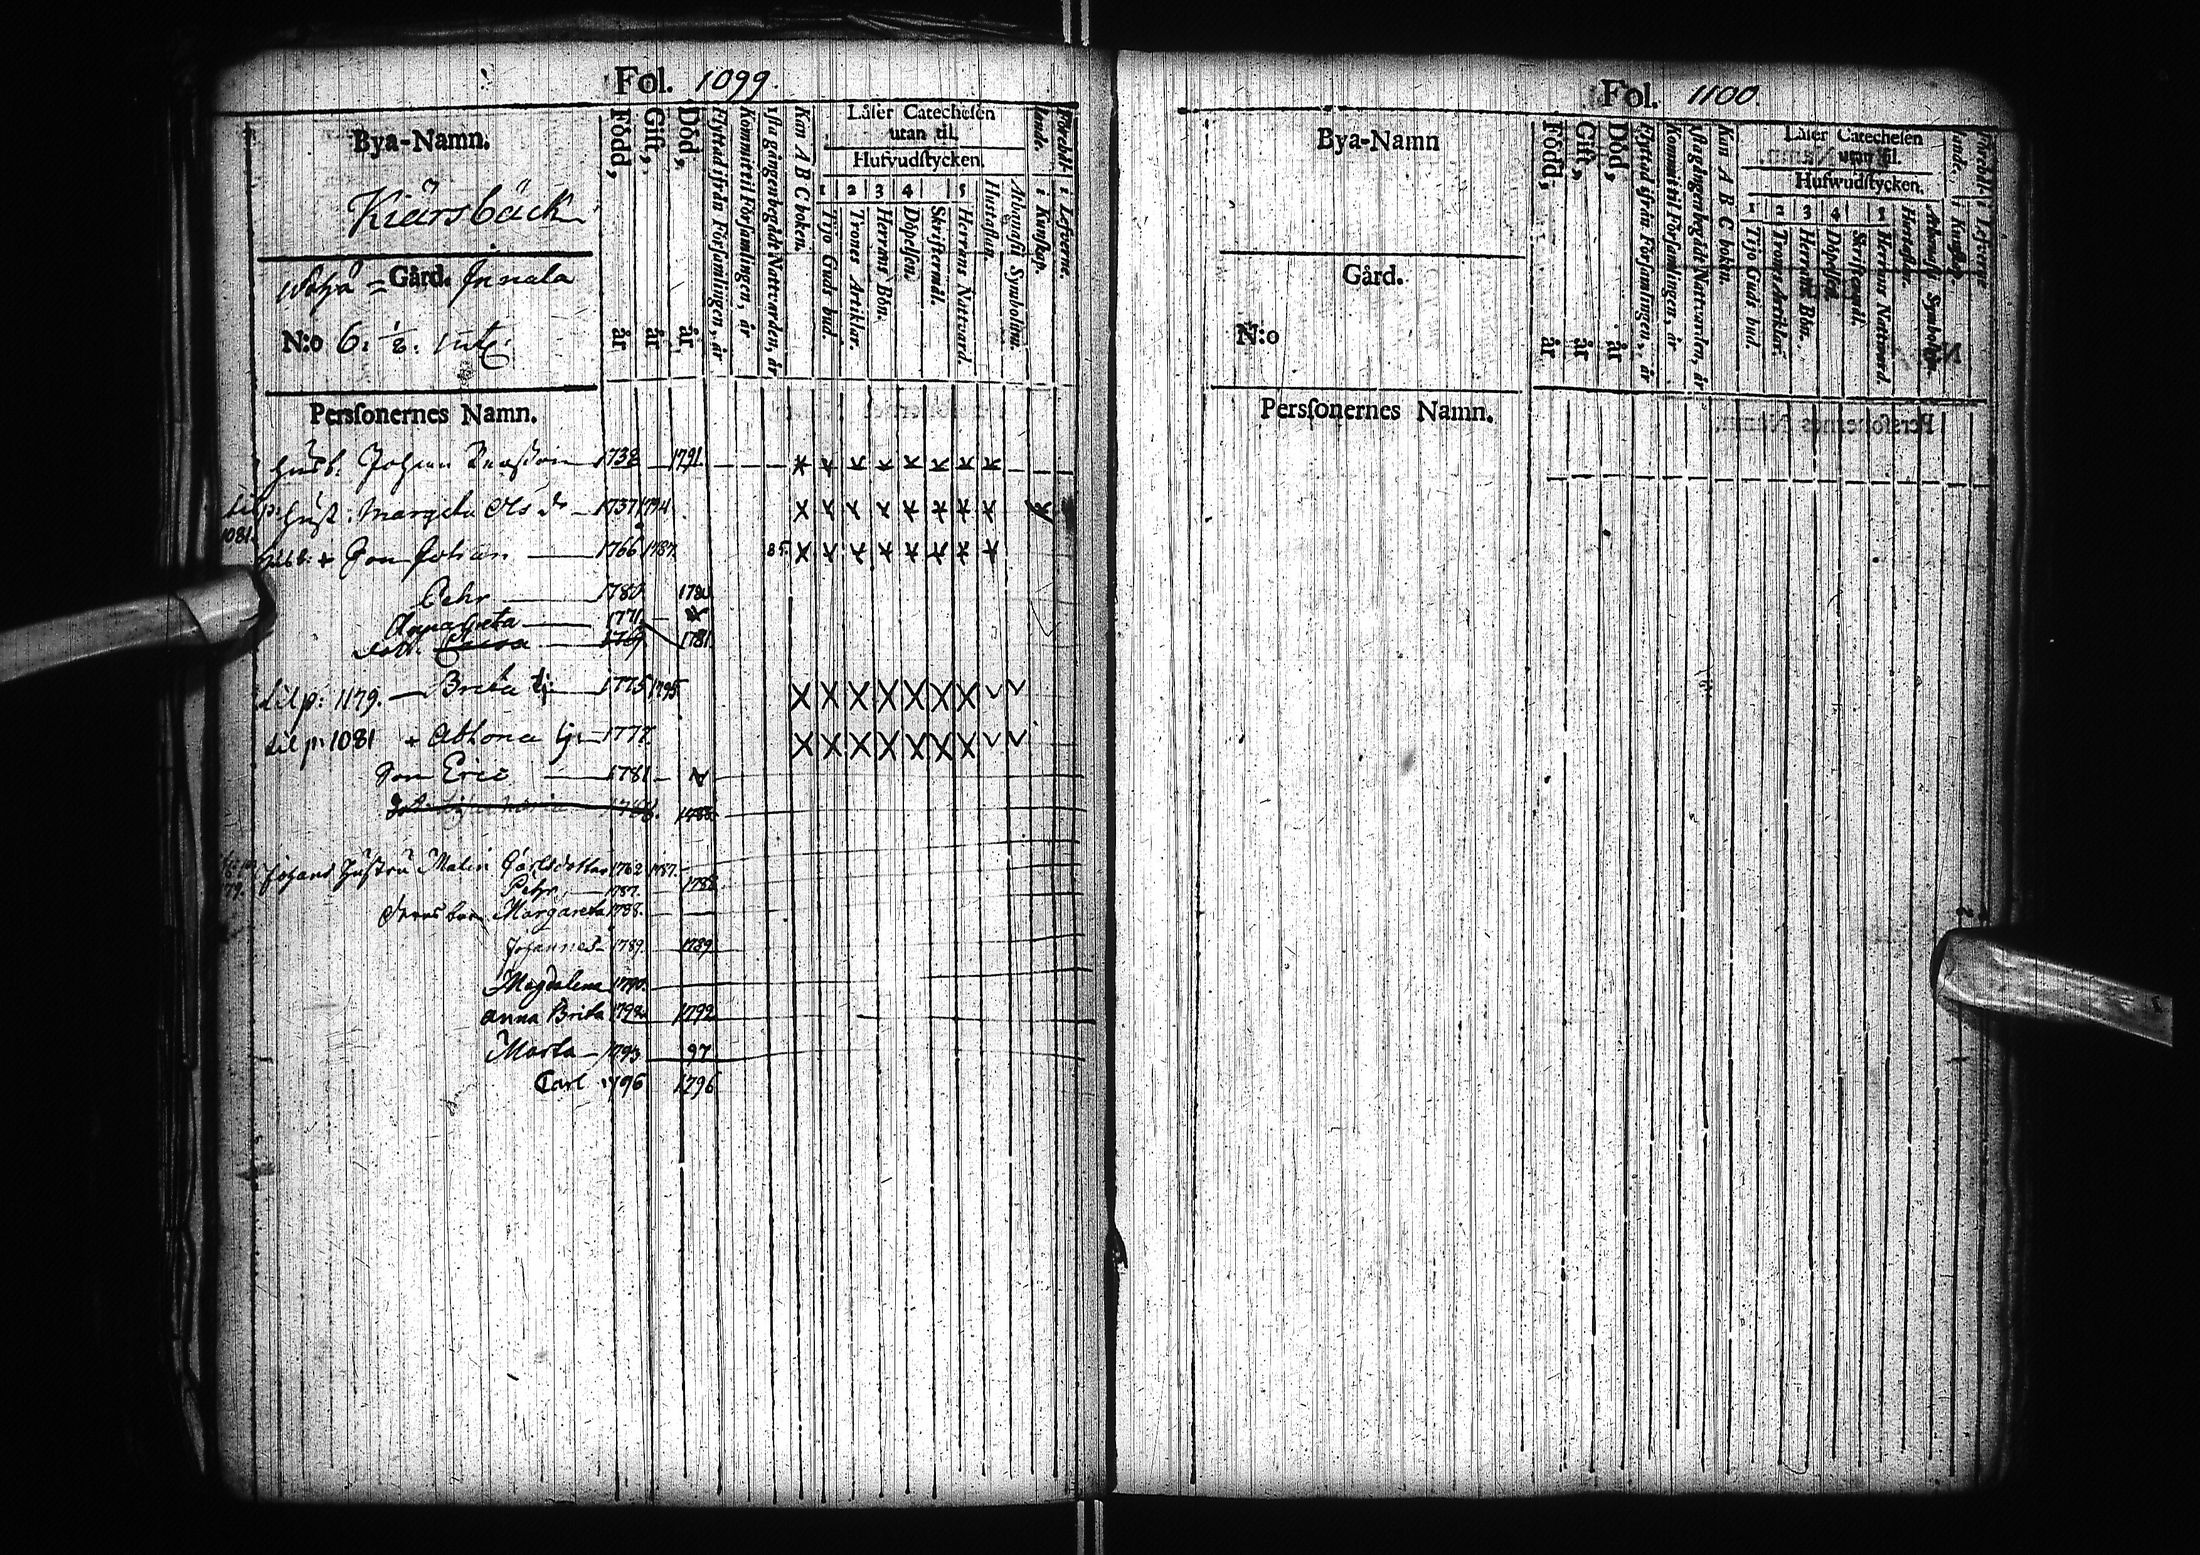 Fol. 1099.
Bya-Namn.
Kiärsbäck
Gård. Jnnala
N:o 6. 1/8.
Född, år
Gift, år
Död, år
Flyttad ifrån Församlingen, år
Kommit til Församlingen, år
1sta gången begådt Nattvarden, år
Kan A B C boken.
Låser Catechesen
utan til.
Hufvudstycken.
1 2 3 4 5
Tijo Guds bud.
Trones Artiklar.
Herrans Bön.
Döpelsen.
Skriftermål.
Herrans Nattvard.
Hustaflan.
Athanasii Symbolum.
i Kunskap.
i Lefverne
Personernes Namn.
Husb. Johan 1738 1791
Hust. Margeta Ols dr 1737 1794
1081.
Husb: + Son Johan 1766 1787. 85
Pehr 1780 1780
Anna Greta 1771
1781
til p: 1179. Brita 1775 1795
til p: 1081 + 1777.
Son Eric 1781
1788
Johans Hustru Malin Carlsdotter 1762 1787.
Pehr 1787. 1788
deras barn Margareta 1788.
Johannes 1789. 1789
Magdalena 1790.
Anna Brita 1792 1792
Maria 1793 97
Carl 1796 1796
Fol. 1100.
Bya-Namn
Gård.
N:o
Född, år
Gift, år
Död, år
Flyttad ifrån Församlingen, år
Kommit til Församlingen, år
1sta gången begådt Nattvarden, år
Kan A B C boken.
Låser Catechesen
utan til.
Hufwudstycken.
1 2 3 4 5
Tijo Guds bud.
Trones Artiklar.
Herrans Bön.
Döpelsen.
Skriftermål.
Herrans Nattvard.
Hustaflan.
Athanasii Symbolum.
i Kunskap.
i Lefverne
Personernes Namn.